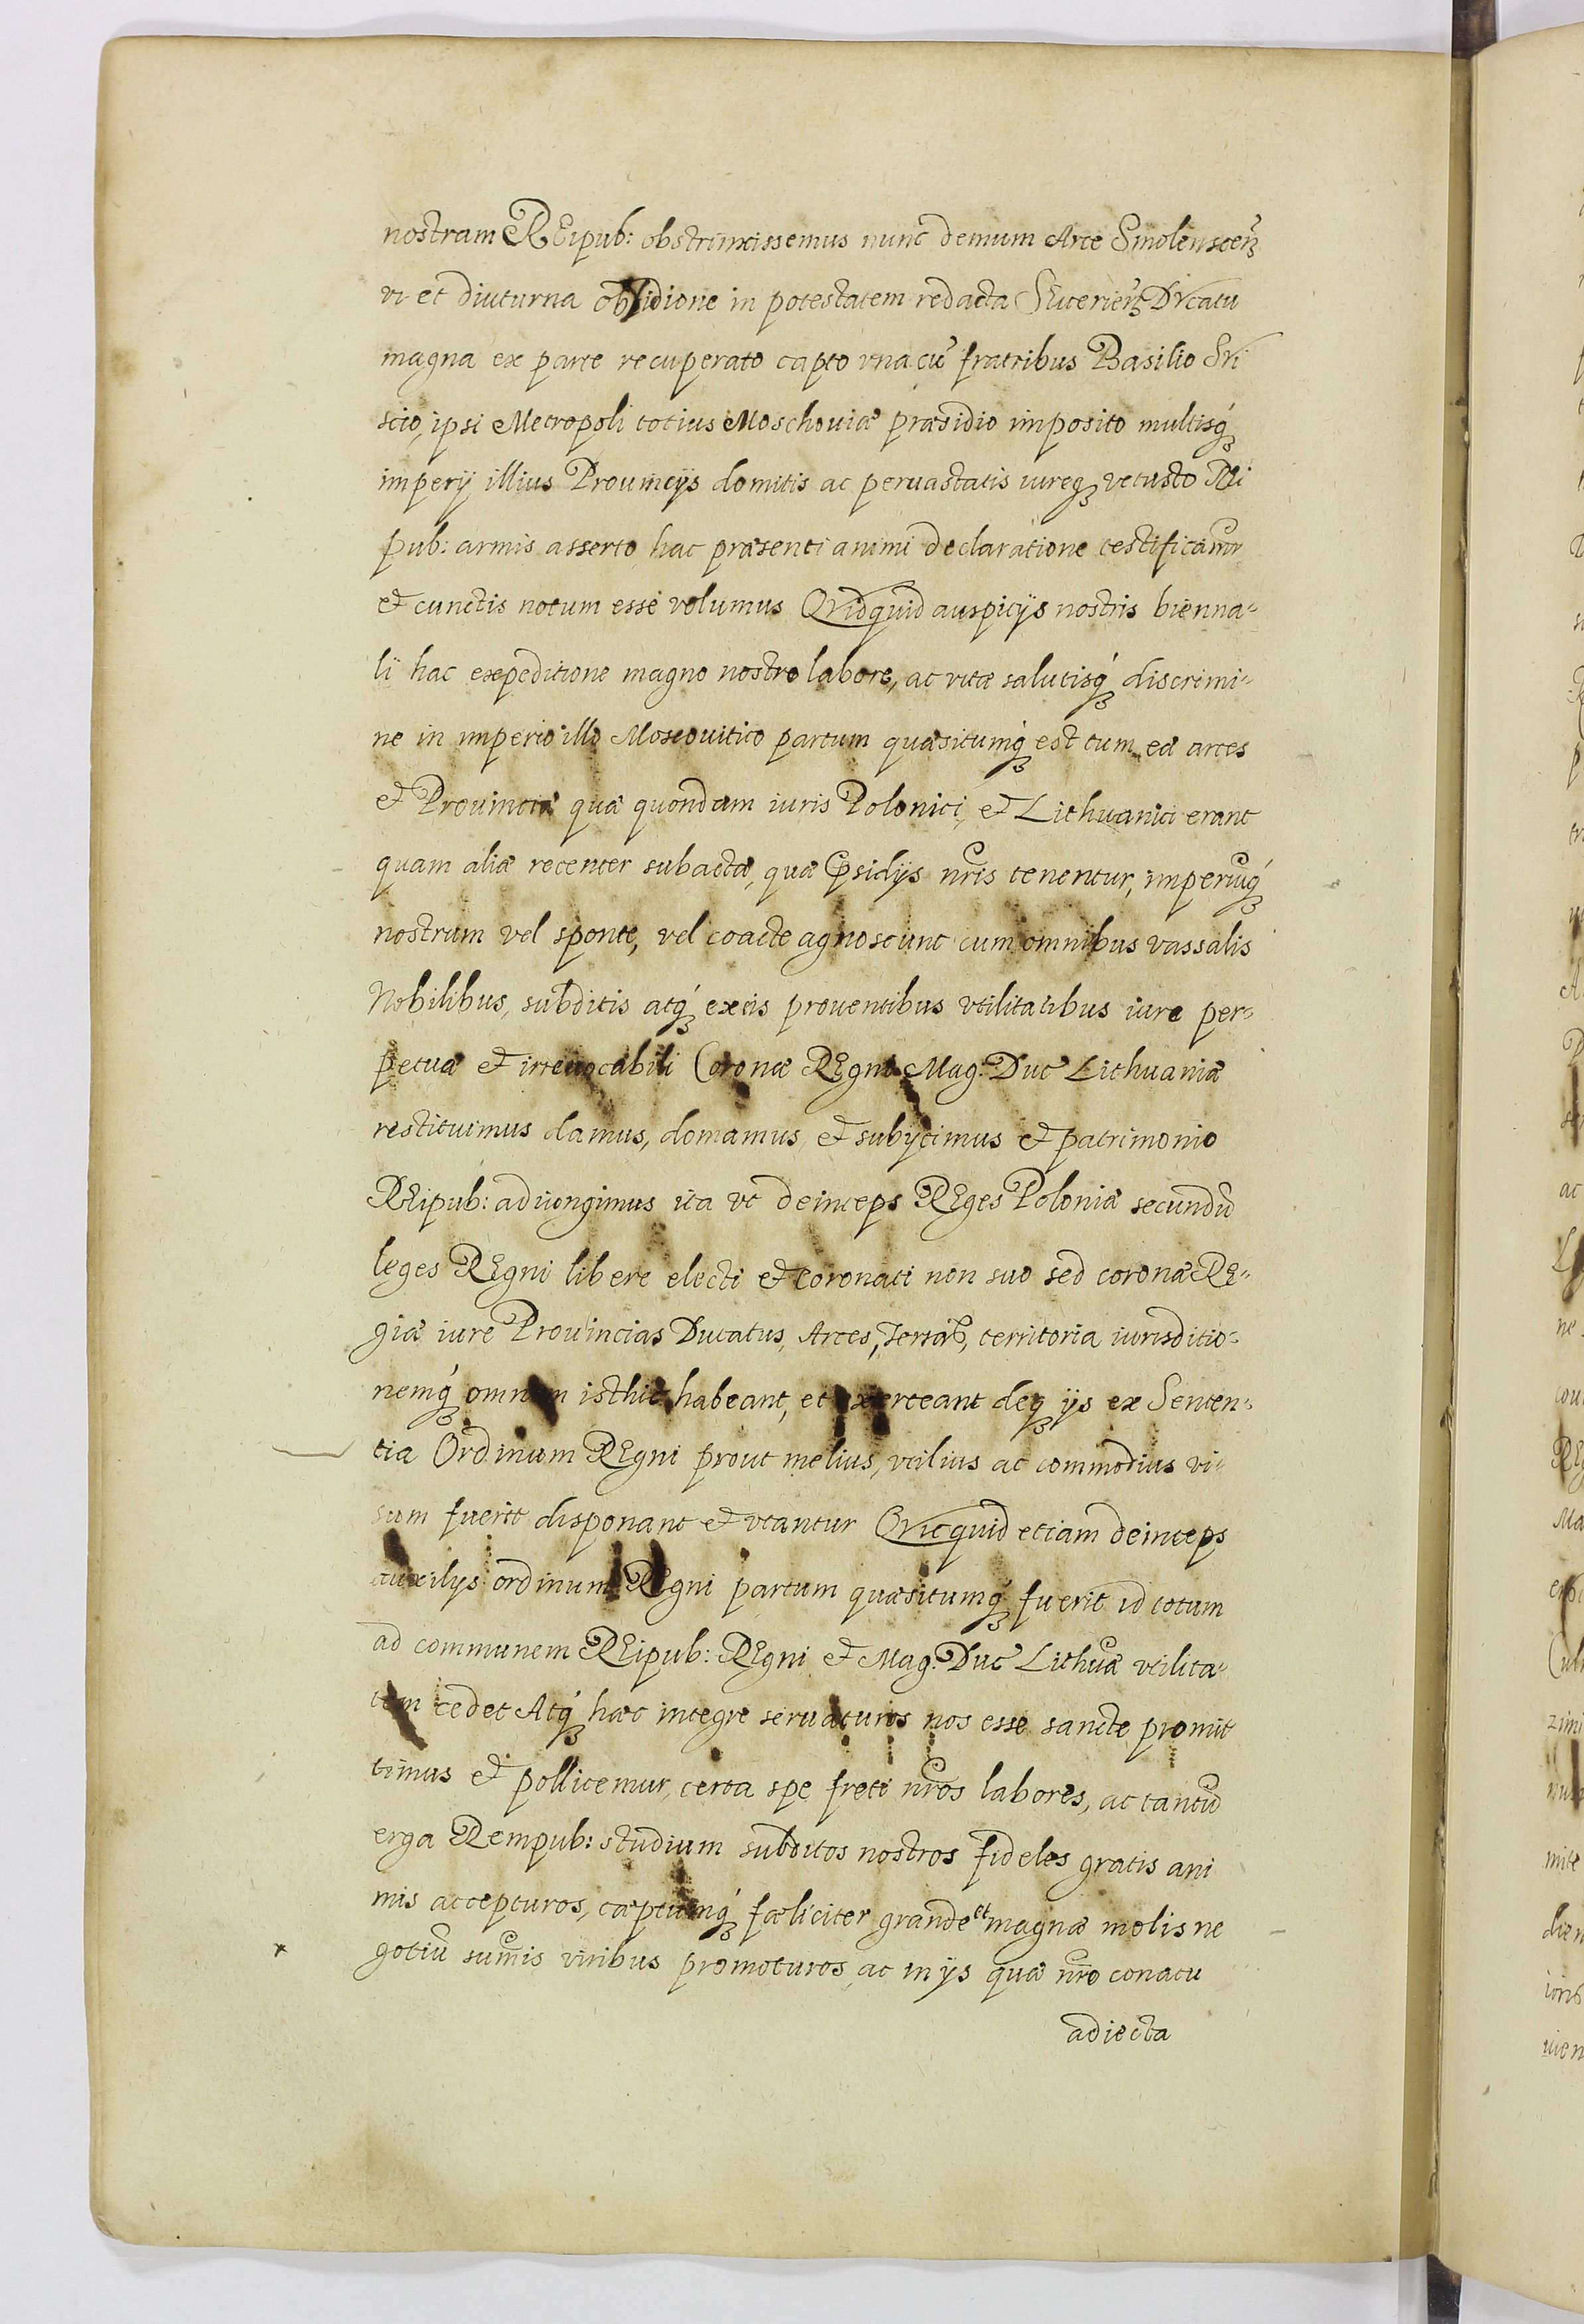 nostram REipub: obstrinxissemus nunc demum Arce Smolenscen̄
vi et diuturna obsidione in potestatem redacta Seuerien̄ Ducatu
magna ex parte recuperato capto vna cū fratribus Basilio Sui
scio, ipsi Metropoli totius Moschouiæ præsidio imposito multisq́ꝫ
imperij illius Prouincijs domitis ac peruastatis iureqꝫ vetusto Rei
pub: armis asserto, hac præsenti animi declaratione testificamur
et cunctis notum esse volumus Quidquid auspicijs nostris bienna-
li hac expeditione magno nostro labore, ac vitæ salutisq́ꝫ discrimi-
ne in imperio illo Moscouitico partum quæsitumq́ꝫ est tum eæ arces
et Prouinciæ quæ quondam iuris Polonici, et Lithuanici erant
quam aliæ recenter subactæ, quæ p̄sidijs nr̄is tenentur, imperiūq́ꝫ
nostrum vel sponte, vel coacte agnoscunt cum omnibus vassalis
Nobilibus, subditis atq́ꝫ ex eis prouentibus vtilitatibus iure per-
petuæ et irreuocabili Coronæ REgni Mag: Duc Lithuaniæ
restituimus damus, domamus, et subijcimus et patrimonio
REipub: adiungimus ita vt deinceps REges Poloniæ secundū
leges REgni libere electi et coronati non suo sed coronæ RE-
giæ iure Prouincias Ducatus, Arces, Terras, territoria iurisditio-
nemq́ꝫ omnem isthic habeant, et exerceant deqꝫ ijs ex Senten-
tia Ordinum REgni prout melius, vtilius ac commodius vi-
sum fuerit disponant et vtantur Quicquid etiam deinceps
auxilijs ordinum REgni partum quæsitumq́ꝫ fuerit id totum
ad communem REipub: REgni et Mag: Duc Lithuæ vtilita-
tem cedet Atq́ꝫ hæc integre seruaturos nos esse sancte promit
timus et pollicemur, certa spe freti nr̄os labores, ac tantū
erga Rempub: studium subditos nostros fideles gratis ani
mis accepturos, cæptumq́ꝫ fæliciter grande et magnæ molis ne
gotiū sum̄is viribus promoturos, ac in ijs quæ nr̄o conatu
adiecta